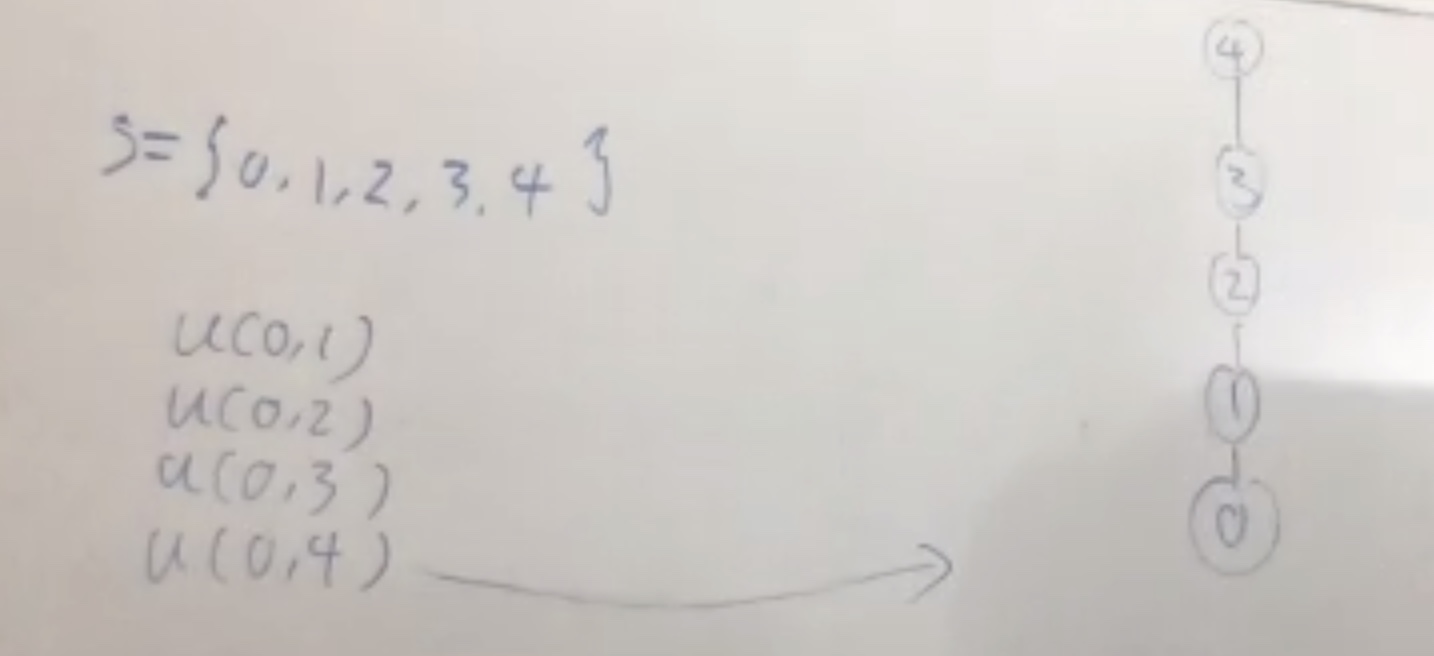 S={0,1,2,3,4}
u(0,1)
u(0,2)
u(0,3)
u(0,4)
4
3
2
1
0